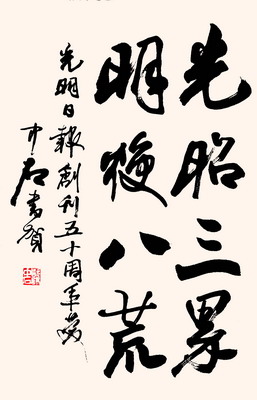 光昭三界
明八荒
光明日報創刊五十周年
中石書賀